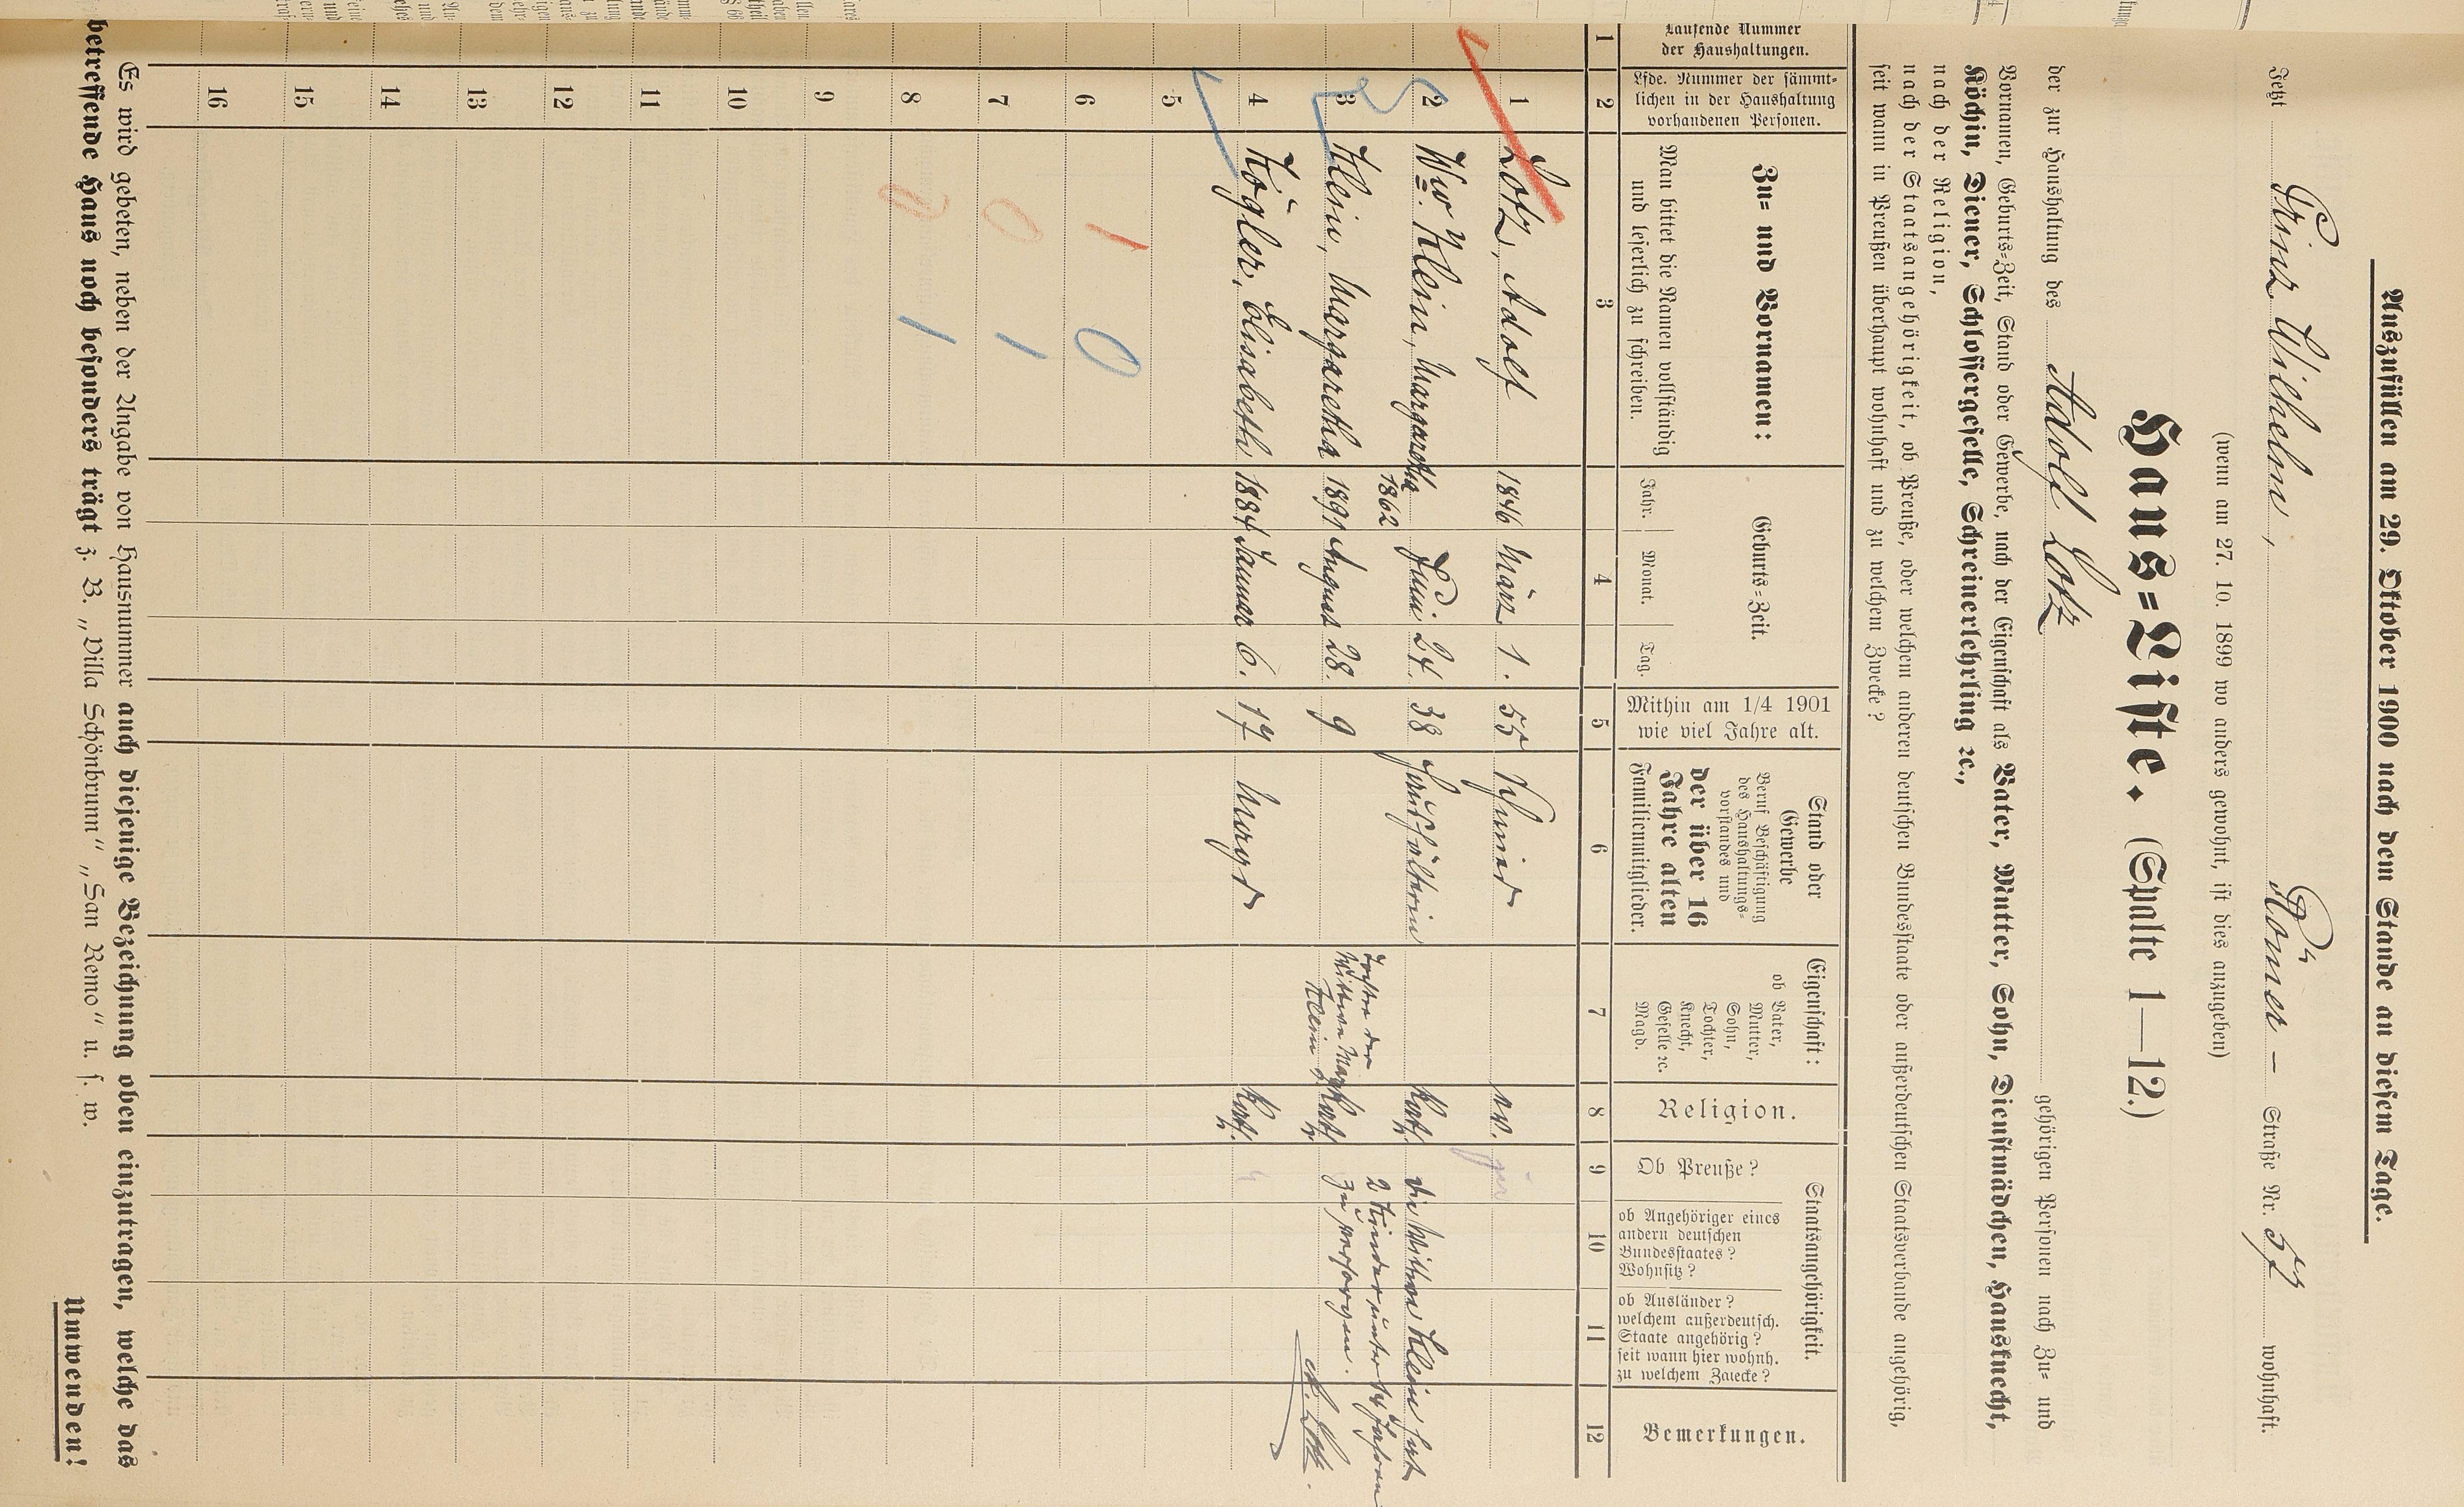 Auszufüllen am 29. Oktober 1900 nach dem Stande an diesem Tage.
Jetzt Prinz Wilhelm, Römer - Straße Nr. 57 wohnhaft.
(wenn am 27. 10. 1899 wo anders gewohnt, ist dies anzugeben)
Haus-Liste. (Spalte 1—12.)
der zur Haushaltung des Adolf Lotz gehörigen Personen nach Zu- und
Vornamen, Geburts-Zeit, Stand oder Gewerbe, nach der Eigenschaft als Vater, Mutter, Sohn, Dienstmädchen, Hausknecht,
Köchin, Diener, Schlossergeselle, Schreinerlehrling ꝛc.,
nach der Religion,
nach der Staatsangehörigkeit, ob Preuße, oder welchem anderen deutschen Bundesstaate oder außerdeutschen Staatsverbande angehörig,
seit wann in Preußen überhaupt wohnhaft und zu welchem Zwecke?
Laufende Nummer
der Haushaltungen.
Lfde. Nummer der sämmt-
lichen in der Haushaltung
vorhandenen Personen.
Zu- und Vornamen:
Man bittet die Namen vollständig
und leserlich zu schreiben.
Geburts-Zeit.
Jahr. Monat. Tag.
Mithin am 1/4 1901
wie viel Jahre alt.
Stand oder
Gewerbe
Beruf Beschäftigung
des Haushaltungs-
vorstandes und
der über 16
Jahre alten
Familienmitglieder.
Eigenschaft:
ob Vater,
Mutter,
Sohn,
Tochter,
Knecht,
Geselle ꝛc.
Magd.
Religion.
Staatsangehörigkeit.
Ob Preuße?
ob Angehöriger eines
andern deutschen
Bundesstaates?
Wohnsitz?
ob Ausländer?
welchem außerdeutsch.
Staate angehörig?
seit wann hier wohnh.
zu welchem Zwecke?
Bemerkungen.
1 2 3 4 5 6 7 8 9 10 11 12
1 Lotz, Adolf 1846 März 1. 55 ev.
2 Ww. Klein, Margaretha 1862 Juni 24. 38 Haushälterin kath. die Wittwe Klein hat
2 Kinder unter 14 Jahren
zu versorgen.
A. Lotz.
3 Klein, Margaretha 1891 August 28. 9 Tochter der
Wittwe Marg.
Klein kath.
4 Kögler, Elisabeth 1884 Januar 6. 17 Magd kath.
5
6 1 0
7 0 1
8 1
9
10
11
12
13
14
15
16
Es wird gebeten, neben der Angabe von Hausnummer auch diejenige Bezeichnung oben einzutragen, welche das
betreffende Haus noch besonders trägt z. B. „Villa Schönbrunn" „San Remo" u. s. w.
Umwenden!